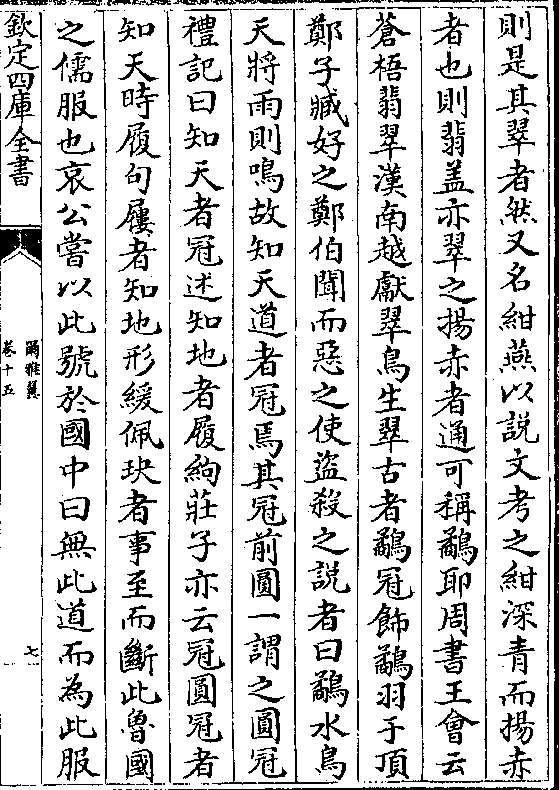 則是其翠者然又名紺燕以説文考之紺深青而揚赤
者也則翡盖亦翠之揚赤者通可稱鷸耶周書王會云
蒼梧翡翠漢南越獻翠鳥生翠古者鷸冠飾鷸羽于項
鄭子臧好之鄭伯聞而惡之使盜殺之説者曰鷸水鳥
天將雨則鳴故知天道者冠焉其冠前圓一謂之圓冠
禮記曰知天者冠述知地者履絇莊子亦云冠圓冠者
知天時履句屨者知地形緩佩玦者事至而斷此魯國
之儒服也哀公嘗以此號於國中曰無此道而為此服
欽定四庫全書
爾雅翼
卷十五
七